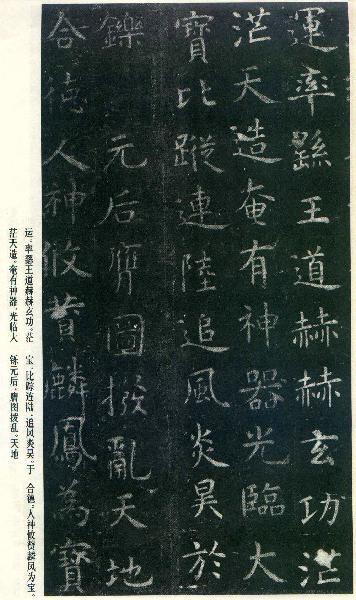 運率繇王道赫赫玄功茫
茫天造奄有神器光臨大
寶比蹤連陸追風炎昊於
鑠 元后膺圖撥亂天地
合德人神攸贊麟鳳為寶
运，率繇王道赫赫玄功。茫
茫天造，奄有神器，光临大
宝，比踪连陆，追风炎昊。于
铄元后，膺图拨乱，天地
合德，人神攸赞麟凤为宝。